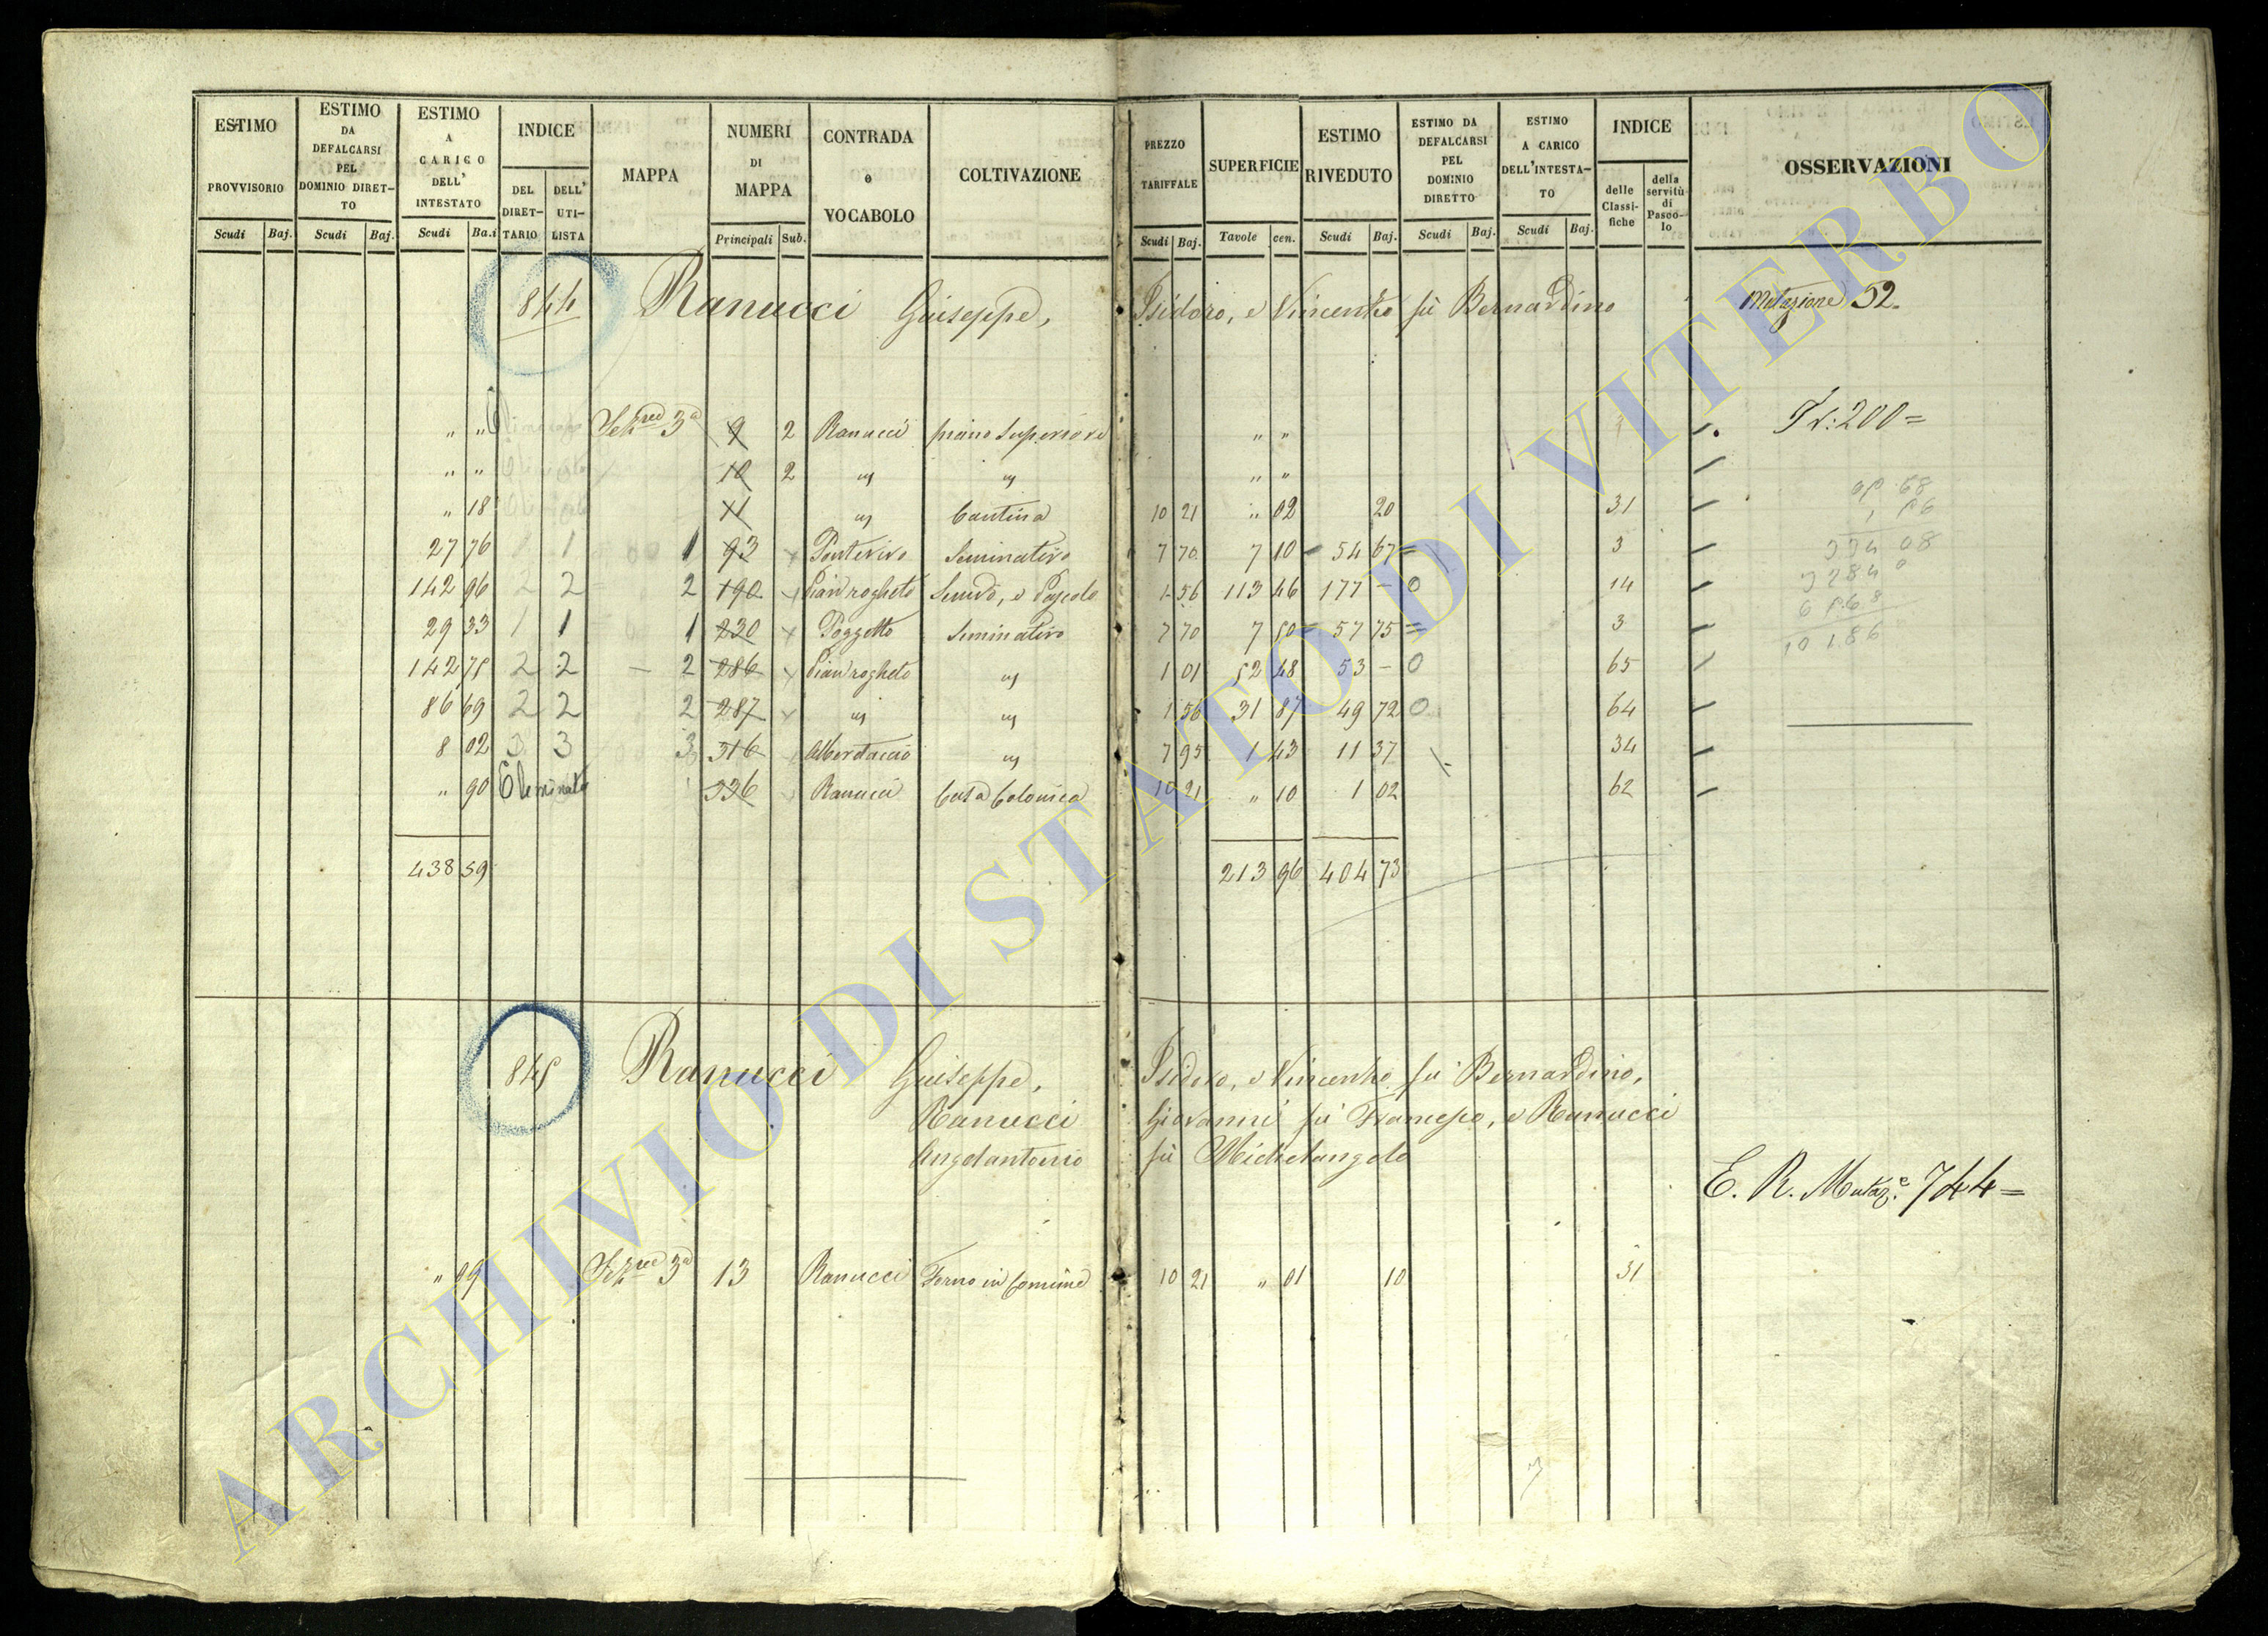 ESTIMO PROVVISORIO | ESTIMO DA DEFALCARSI PEL DOMINIO DIRET-TO | ESTIMO A CARICO DELL' INTESTATO | INDICE DEL DIRET-TARIO | DELL' UTI-LISTA | MAPPA | NUMERI DI MAPPA | CONTRADA e VOCABOLO | COLTIVAZIONE | PREZZO TARIFFALE | SUPERFICIE | ESTIMO RIVEDUTO | ESTIMO DA DEFALCARSI PEL DOMINIO DIRETTO | ESTIMO A CARICO DELL'INTESTA-TO | INDICE delle Classi-fiche | della servitù di Pasco-lo | OSSERVAZIONI
Scudi | Baj. | Scudi | Baj. | Scudi | Ba.i | Principali | Sub. | Scudi | Baj. | Tavole | cen. | Scudi | Baj. | Scudi | Baj. | Scudi | Baj.
844 Ranucci Giuseppe, Isidoro, e Vincenzo fù Bernardino Mutazione 52.
" " 3a 9 2 Ranucci piano Superiore " " Tr: 200 =
" " 10 2 " " " "
" 18 11 " Cantina 10 21 " 02 20 31
27 76 1 1 93 Pontevivo Seminativo 7 70 7 10 54 67 3
142 96 2 2 2 190 Pian rogheto Semivo, e Pascolo 1 56 113 46 177 - 0 14
29 33 1 1 1 230 Poggetto Seminativo 7 70 7 50 57 75 3
142 75 2 2 2 286 Pian rogheto " 1 01 52 48 53 - 0 65
86 69 2 2 2 287 " " 1 56 31 87 49 72 0 64
8 02 3 3 3 316 " 7 95 1 43 11 37 34
" 90 Eliminato 336 Ranucci Casa Colonica 10 21 " 10 1 02 62
438 59 213 96 404 73
845 Ranucci Giuseppe, Isidoro, e Vincenzo fù Bernardino,
Ranucci Giovanni fù Francesco, e Ranucci
Angelantonio fù Michelangelo
E. R. Mutaz.e 744 =
" 09 3a 13 Ranucci Forno in Comune 10 21 " 01 10 31
ARCHIVIO DI STATO DI VITERBO